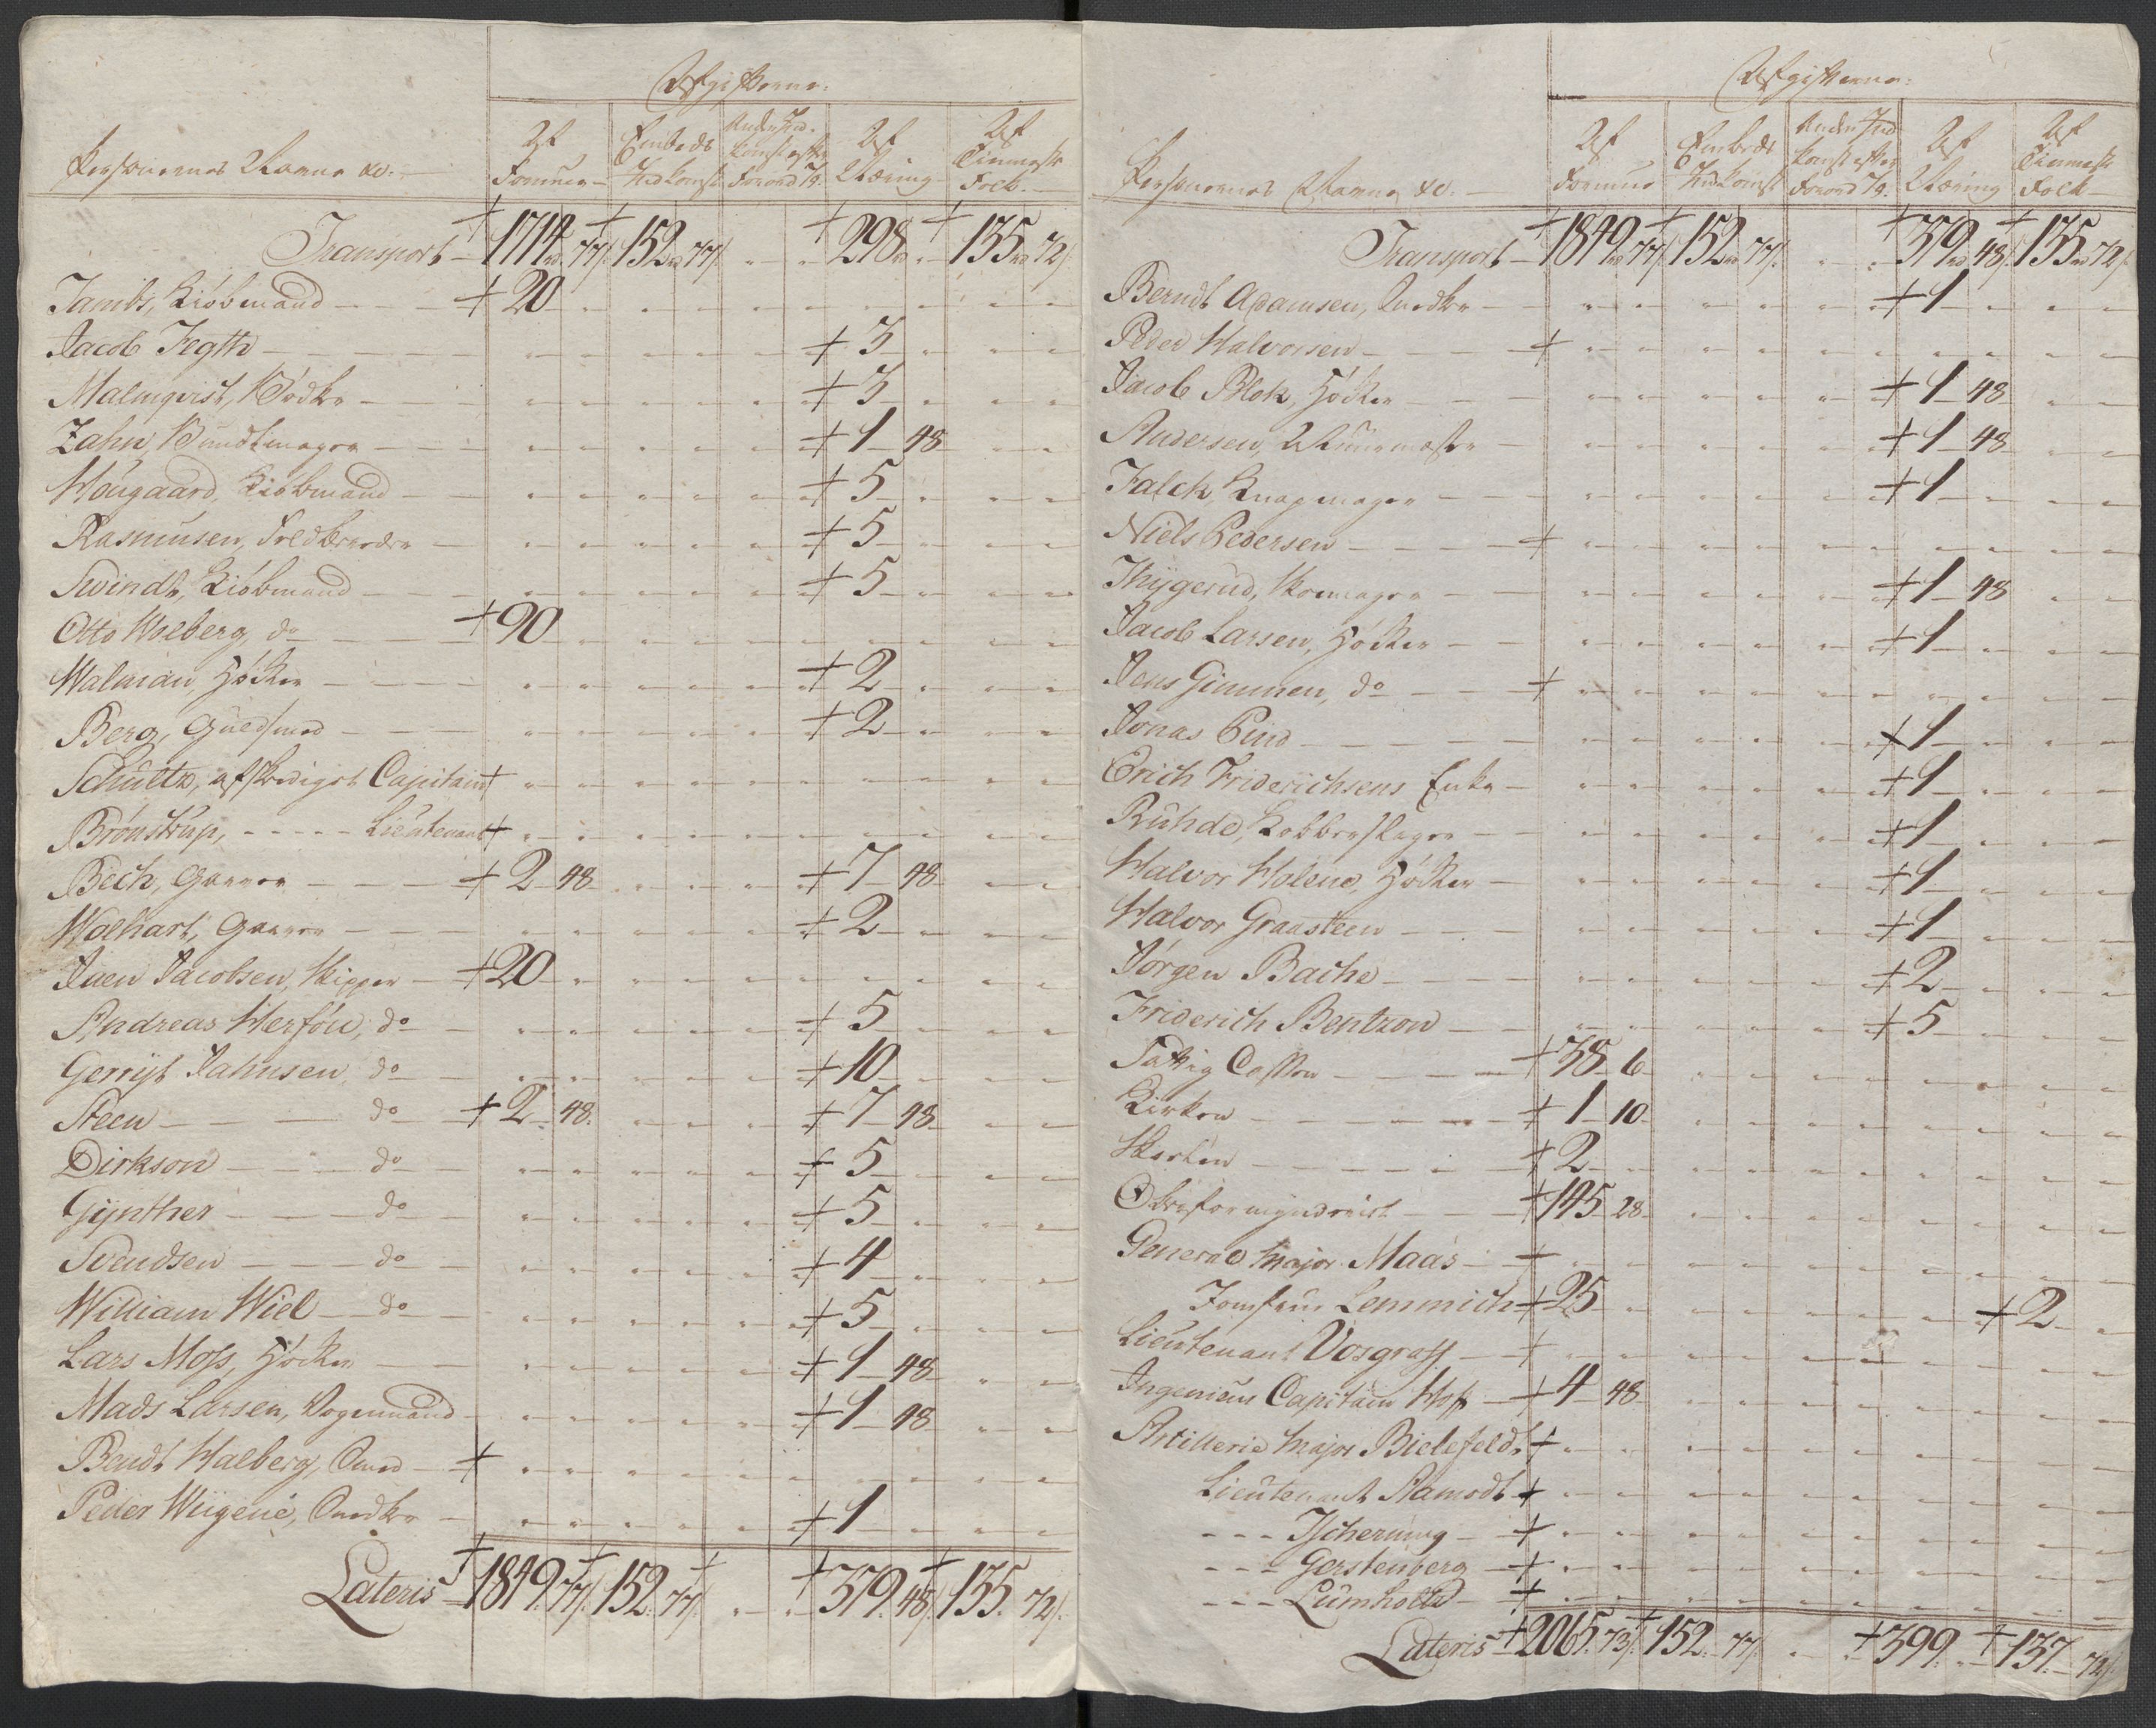 Afgifterne.
Personernes Navne &c. Af Formue Embeds Indkomst Anden Ind- komst efter Forord 7 § Af Næring Af Tienneste Folk
Transport 1714 rd 77 s 152 rd 77 s 298 rd 135 rd 72 s
Tambs, Kiøbmand + 20
Jacob Fegth + 3
Malmqvist, Bødker + 3
Zahn, Bundtmager + 1 48
Hougaard, Kiøbmand + 5
Rasmusen, Feldbereder + 5
Swindt, Kiøbmand + 5
Otto Wolberg, do + 90
Walman, Høker + 2
Berg, Guldsmed + 2
Schultz, afskediget Capitain +
Brønstrup, - - - - - Lieutenant +
Bech, Garver + 2 48 + 7 48
Wolhart, Garver + 2
Jaen Jacobsen, Skipper + 20
Andreas Herføu, do + 5
Gerrijt Jahnsen, do + 10
Steen do + 2 48 + 7 48
Dirkson do + 5
Gijnther do + 5
Svendsen do + 4
William Wiel do + 5
Lars Moss, Høker + 1 48
Mads Larsen, Vognmand + 1 48
Bendt Halberg, Smed +
Peder Wiigene, Snedker + 1
Lateris 1849. 77 s 152. 77 s 379. 48 s 135. 72 s
Afgifterne.
Personernes Navne &c. Af Formue Embeds Indkomst Anden Ind- komst efter Forord 7 § Af Næring Af Tienneste Folk
Transport 1849 rd 77 s 152 rd 77 s 379 rd 48 s 135 rd 72 s
Berndt Adamsen, Snedker + 1
Peder Halvorsen +
Jacob Blok, Høker + 1 48
Andersen, Muurmester + 1 48
Falck, Knapmager + 1
Niels Pedersen +
Thijgerud, Skomager + 1 48
Jacob Larsen, Høker + 1
Jens Gimmen, do +
Jonas Lind + 1
Erich Friderichsens Enke + 1
Ruhde, Kobberslager + 1
Halvor Holene, Høker + 1
Halvor Graasteen + 1
Jørgen Bache + 2
Friderich Bentzon + 5
Fattig Cassen + 38 6
Kirken + 1 10
Skolen + 2
Overformynderiet + 145 28
General Major Maas +
Jomfrue Lemmich + 25 + 2
Lieutenant Vosgraff +
Ingenieur Capitain Hoff + 4 48
Artillerie Major Bielefeldt +
Lieutenant Ramodt +
- - - Tscherning +
- - - Gerstenberg +
- - - Lumholtz +
Lateris 2065. 73 s 152. 77 s 399. 137. 72 s